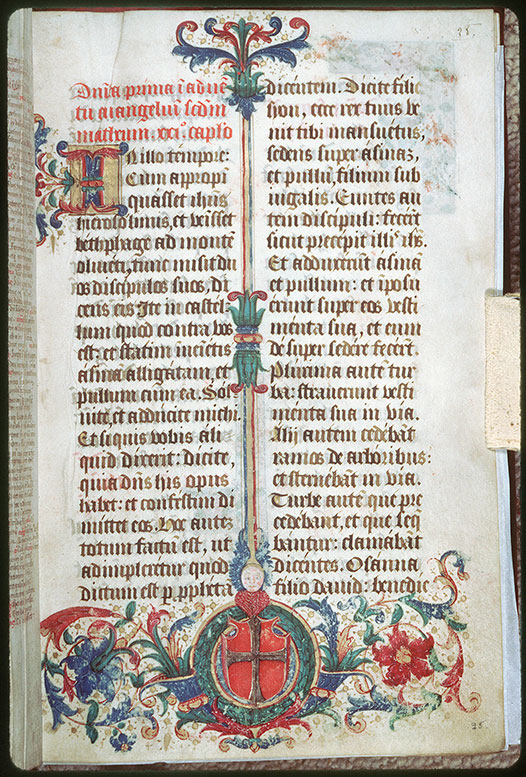 25
Dnica prima i adue
tu euangeliu scdm
matheum . xxi°. caplo
IN illo tempore:
Cum appropi
quasset ihus
hierosolimis, et venisset
bethphage ad monte
oliueti, tunc misit du
os discipulos suos, di
cens eis Ite in castel
lum quod contra vos
est: et statim inuenietis
asina alligatam, et
pullum cum ea. Sol
uite, et adducite michi.
Et si quis vobis ali
quid dixerit: dicite,
quia dns his opus
habet: et confestim di
mittet eos. Hoc autez
totum factu est, ut
adimpleretur quod
dictum est p. pphetā
dicentem. Dicite filie
sion, ecce rex tuus ve
nit tibi mansuetus,
sedens super asinaz,
et pullu, filium sub
iugalis. Euntes au
tem discipuli: fecert
sicut precepit illis ihs.
Et adduxerut asinā
et pullum: et iposu
erunt super eos vesti
menta sua, et eum
de super sedere fecert.
Plurima autē tur
ba: strauerunt vesti
menta sua in via.
Alij autem cedebāt
ramos de arboribus:
et sternebāt in via.
Turbe autē, que pre
cedebant, et que seq
bantur: clamabāt
dicentes. Osanna
filio dauid: benedic
25.